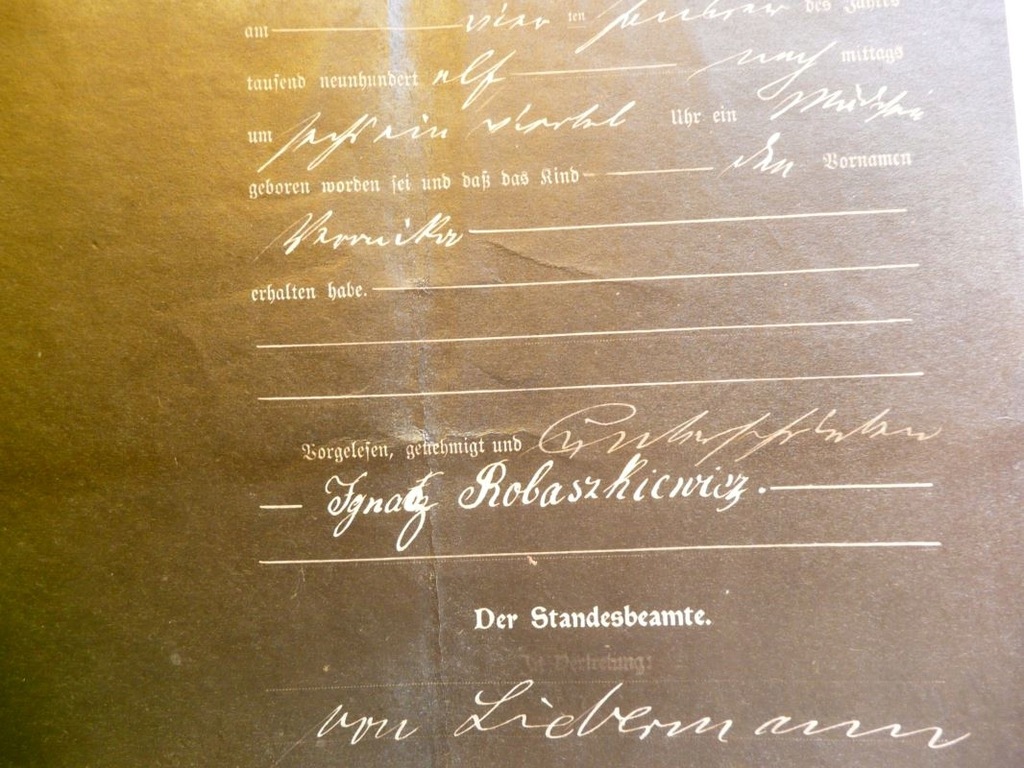 am vier ten Januar des Jahres
tausend neunhundert elf nach mittags
um sechs ein viertel Uhr ein Mädchen
geboren worden sei und daß das Kind den Vornamen
Veronika
erhalten habe.
Vorgelesen, genehmigt und unterschrieben
Ignatz Robaszkiewicz.
Der Standesbeamte.
In Vertretung:
von Liebermann